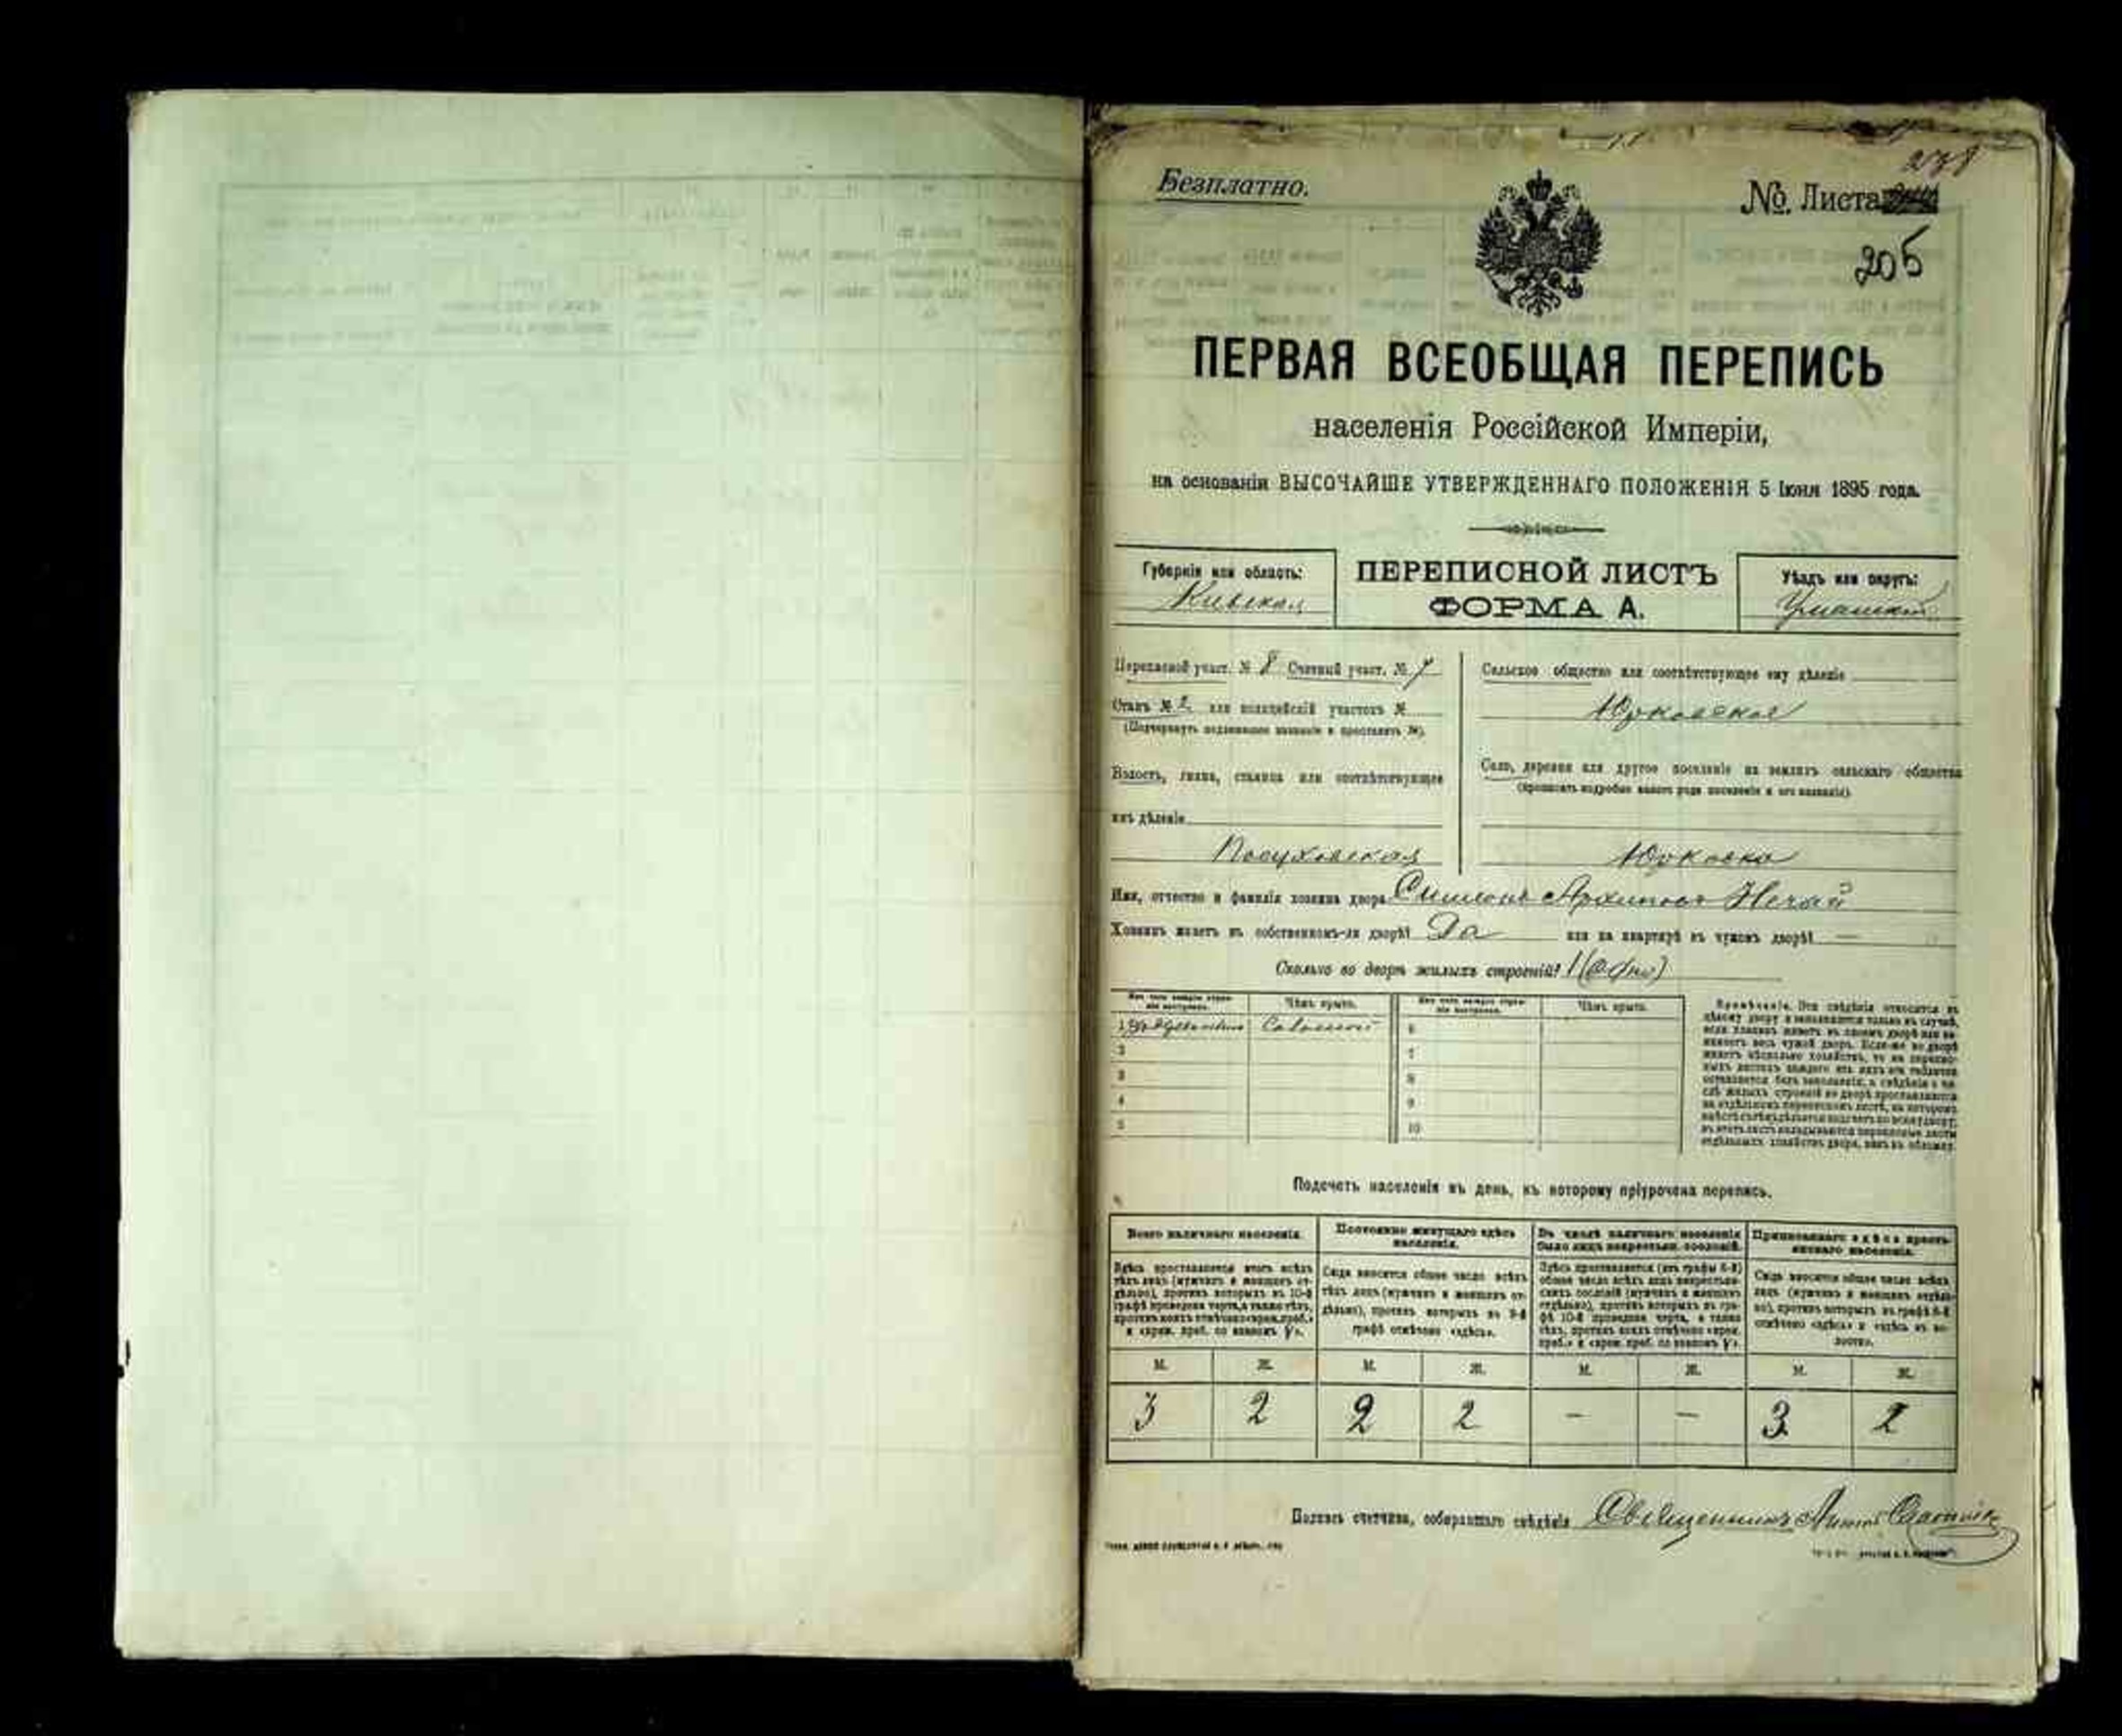 238
Безплатно.
№. Листа
205
ПЕРВАЯ ВСЕОБЩАЯ ПЕРЕПИСЬ
населенія Россійской Имперіи,
на основаніи ВЫСОЧАЙШЕ УТВЕРЖДЕННАГО ПОЛОЖЕНІЯ 5 Іюня 1895 года.
Губернія или область:
Кіевская
ПЕРЕПИСНОЙ ЛИСТЪ
ФОРМА А.
Уѣздъ или округъ:
Уманскій
Переписной участ. № 8 Счетный участ. № 7
Станъ № 2 или полицейскій участокъ №
(Подчеркнуть подлежащее названіе и проставить №).
Волость, гмина, станица или соотвѣтствующее
имъ дѣленіе
Посуховская
Сельское общество или соотвѣтствующее ему дѣленіе
Юрковское
Село, деревня или другое поселеніе на земляхъ сельскаго общества
(прописать подробно какого рода поселеніе и его названіе).
Юрковка
Имя, отчество и фамилія хозяина двора Симеонъ Архиповъ Нечай
Хозяинъ живетъ въ собственномъ-ли дворѣ? Да или на квартирѣ въ чужомъ дворѣ? —
Сколько во дворѣ жилыхъ строеній? 1 (Одно)
Изъ чего каждое строеніе построено. Чѣмъ крыто. Изъ чего каждое строеніе построено. Чѣмъ крыто.
1 Соломой 6
2 7
3 8
4 9
5 10
Примѣчаніе. Эти свѣдѣнія относятся къ
цѣлому двору и заполняются только въ случаѣ,
если хозяинъ живетъ въ своемъ дворѣ или занимаетъ
весь чужой дворъ. Если-же во дворѣ
живетъ нѣсколько хозяйствъ, то на переписныхъ
листахъ каждаго изъ нихъ эта табличка
оставляется безъ заполненія, а свѣдѣнія о числѣ
жилыхъ строеній во дворѣ проставляются
на отдѣльномъ переписномъ листѣ, на которомъ
Подсчетъ населенія въ день, къ которому пріурочена перепись.
Всего наличнаго населенія.
Здѣсь проставляется итогъ всѣхъ
тѣхъ лицъ (мужчинъ и женщинъ отдѣльно),
противъ которыхъ въ 10-й
графѣ проведена черта, а также тѣхъ,
противъ коихъ отмѣчено «врем. преб.»
Постоянно живущаго здѣсь
населенія.
Сюда вносится общее число всѣхъ
тѣхъ лицъ (мужчинъ и женщинъ отдѣльно),
противъ которыхъ въ 9-й
графѣ отмѣчено «здѣсь».
Въ числѣ наличнаго населенія
было лицъ некрестьян. сословій.
Здѣсь проставляется (изъ графы 6-й)
общее число всѣхъ лицъ некрестьянскихъ
сословій (мужчинъ и женщинъ
отдѣльно), противъ которыхъ въ графѣ
10-й проведена черта, а также
тѣхъ, противъ коихъ отмѣчено «врем.
Приписаннаго здѣсь крестьянскаго
населенія.
Сюда вносится общее число всѣхъ
лицъ (мужчинъ и женщинъ отдѣльно),
противъ которыхъ въ графѣ 8-й
отмѣчено «здѣсь» и «здѣсь въ волости».
М. Ж. М. Ж. М. Ж. М. Ж.
3 2 2 2 — — 3 2
Подпись счетчика, собиравшаго свѣдѣнія Священникъ